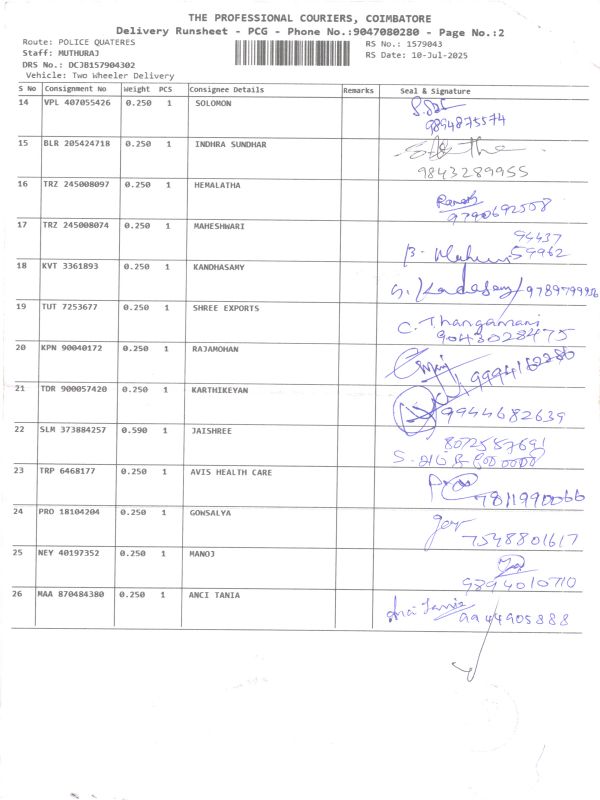 THE PROFESSIONAL COURIERS, COIMBATORE
Delivery Runsheet - PCG - Phone No.:9047080280 - Page No.:2
Route: POLICE QUATERES
RS No.: 1579043
Staff: MUTHURAJ
RS Date: 10-Jul-2025
DRS No.: DCJB157904302
Vehicle: Two Wheeler Delivery
S No Consignment No Weight PCS Consignee Details Remarks Seal & Signature
14 VPL 407055426 0.250 1 SOLOMON
9894875574
15 BLR 205424718 0.250 1 INDHRA SUNDHAR
9843289955
16 TRZ 245008097 0.250 1 HEMALATHA
Ramesh
9790692508
17 TRZ 245008074 0.250 1 MAHESHWARI
94437
59962
18 KVT 3361893 0.250 1 KANDHASAMY
9789799956
19 TUT 7253677 0.250 1 SHREE EXPORTS
C. Thangamani
9043028475
20 KPN 90040172 0.250 1 RAJAMOHAN
21 TDR 900057420 0.250 1 KARTHIKEYAN
9944682639
22 SLM 373884257 0.590 1 JAISHREE
8072557691
23 TRP 6468177 0.250 1 AVIS HEALTH CARE
7811990066
24 PRO 18104204 0.250 1 GOWSALYA
7548801617
25 NEY 40197352 0.250 1 MANOJ
9894010710
26 MAA 870484380 0.250 1 ANCI TANIA
Anci Tania 9944905888